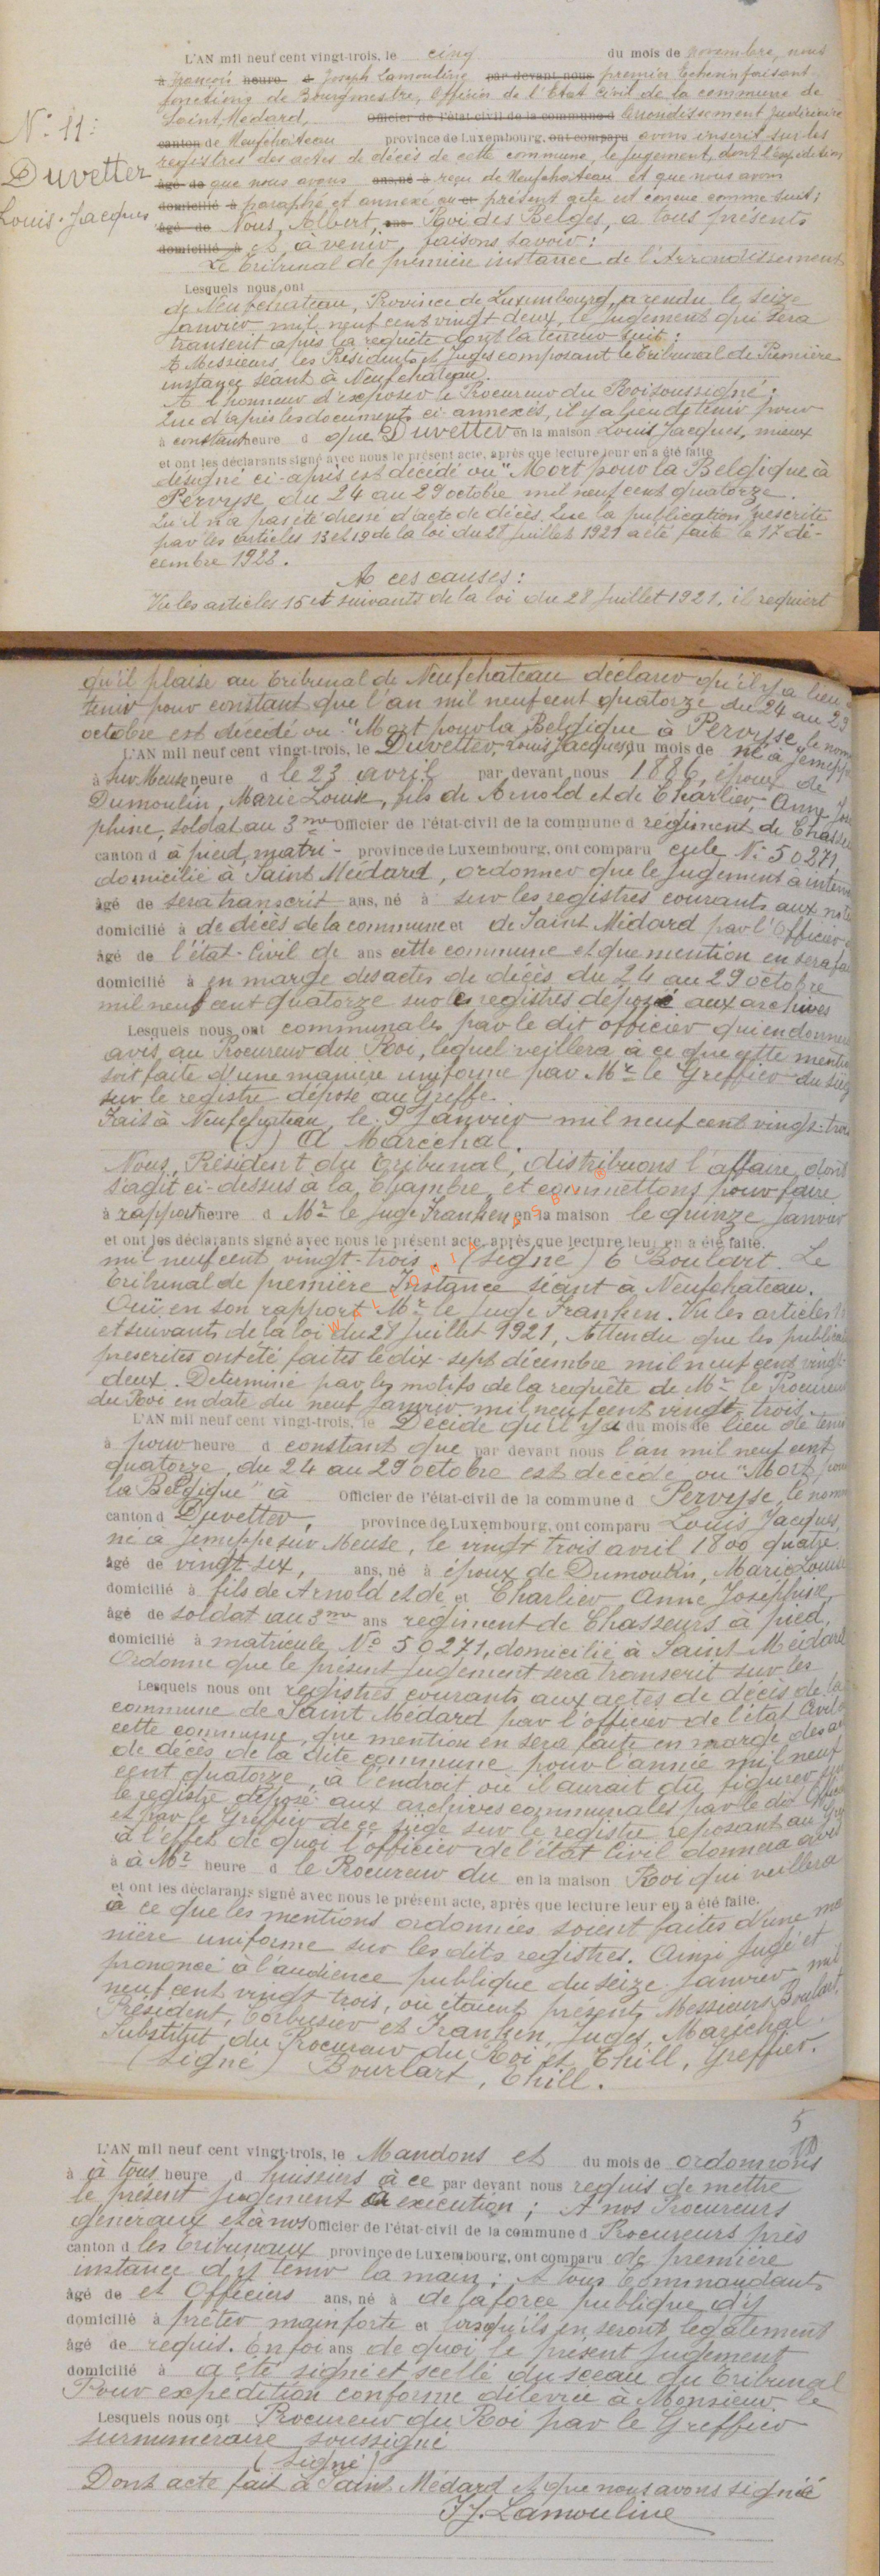 L'AN mil neuf cent vingt-trois, le cinq du mois de novembre, nous
à François heure d Joseph Lamouline par devant nous premier Echevin faisant
fonctions de Bourgmestre, Officier de l'Etat Civil de la commune de
Saint Médard, Officier de l'état-civil de la commune d Arrondissement Judiciaire
canton de Neufchâteau province de Luxembourg, ont comparu avons inscrit sur les
registres des actes de décès de cette commune, le jugement, dont l'expédition
âgé de que nous avons ans, né à reçu de Neufchateau et que nous avons
domicilié à paraphé et annexé au et présent acte est conçue comme suit;
N° 11:
Duvetter
Louis-Jacques
âgé de Nous, Albert, ans Roi des Belges, à tous présents
domicilié à et à venir, faisons savoir:
Le Tribunal de première instance de l'Arrondissement
Lesquels nous ont
de Neufchateau, Province de Luxembourg, a rendu le seize
Janvier mil neuf cent vingt deux, le jugement qui sera
transcrit après la requête dont la teneur suit:
A Messieurs les Présidents et Juges composant le Tribunal de Première
instance séant à Neufchateau.
A l'honneur d'exposer le Procureur du Roi soussigné;
Que d'après les documents ci annexés, il y a lieu de tenir pour
à constant heure d que Duvetter en la maison Louis Jacques, mieux
et ont les déclarants signé avec nous le présent acte, après que lecture leur en a été faite
désigné ci-après est décédé ou "Mort pour la Belgique à
Pervyse, du 24 au 29 octobre mil neuf cent quatorze.
Qu'il n'a pas été dressé d'acte de décès. Que la publication prescrite
par les articles 13 et 19 de la loi du 28 juillet 1921 a été faite le 17 dé-
cembre 1922.
A ces causes:
Vu les articles 15 et suivants de la loi du 28 Juillet 1921, il requiert
qu'il plaise au Tribunal de Neufchateau déclarer qu'il y a lieu
tenir pour constant que l'an mil neuf cent quatorze du 24 au 29
octobre est décédé ou "Mort pour la Belgique à Pervyse, le nom
L'AN mil neuf cent vingt-trois, le Duvetter, Louis Jacques, du mois de né à Jemeppe
à sur-Meuse heure d le 23 avril par devant nous 1886, époux de
Dumoulin, Marie Louise, fils de Arnold et de Charlier, Anne Jose
phine, soldat au 3me Officier de l'état-civil de la commune d régiment de Chasseu
canton d à pied, matri- province de Luxembourg, ont comparu cule N: 50271,
domicilié à Saint Médard, ordonner que le Jugement à interv
âgé de sera transcrit ans, né à sur les registres courants aux
domicilié à de décès de la commune et de Saint Médard par l'Officier
âgé de l'état-Civil de ans cette commune et que mention en sera fai
domicilié à en marge des actes de décès du 24 au 29 octobre
mil neuf cent quatorze sur les registres déposé aux archives
Lesquels nous ont communales par le dit officier qui en donnera
avis au Procureur du Roi, lequel veillera à ce que cette mentio
soit faite d'une manière uniforme par Mr le Greffier du siég
sur le registre déposé au Greffe.
Fait à Neufchateau, le 9 Janvier mil neuf cent vingt-trois
(s) A Maréchal.
Nous, Président du Tribunal, distribuons l'affaire dont
s'agit ci-dessus à la Chambre et commettons pour faire
à rapport heure d Mr le Juge Franken en la maison le quinze Janvier
et ont les déclarants signé avec nous le présent acte, après que lecture leur en a été faite.
mil neuf cent vingt-trois. (signé) E Boulart. Le
Tribunal de première Instance séant à Neufchateau.
Ouï en son rapport Mr le Juge Franken. Vu les articles
et suivants de la loi du 28 Juillet 1921, Attendu que les publica
prescrites ont été faites le dix-sept décembre mil neuf cent vingt-
deux. Déterminé par les motifs de la requête de Mr le Procureur
du Roi en date du neuf Janvier mil neuf cent vingt-trois.
L'AN mil neuf cent vingt-trois, le Décide qu'il y a du mois de lieu de tenir
à pour heure d constant que par devant nous l'an mil neuf cent
quatorze, du 24 au 29 octobre est décédé ou "Mort pour
la Belgique" à Officier de l'état-civil de la commune d Pervyse, le nom
canton d Duvetter, province de Luxembourg, ont comparu Louis Jacques,
né à Jemeppe sur Meuse, le vingt trois avril 1800 quatre
âgé de vingt-six, ans, né à époux de Dumoulin, Marie Louise
domicilié à fils de Arnold et de et Charlier Anne Josephine,
âgé de soldat au 3me ans régiment de Chasseurs à pied,
domicilié à matricule N° 50271, domicilié à Saint Médard
Ordonne que le présent jugement sera transcrit sur les
Lesquels nous ont registres courants aux actes de décès de la
commune de Saint Médard par l'officier de l'état Civil d
cette commune, que mention en sera faite en marge des ac
de décès de la dite commune pour l'année mil neuf
cent quatorze, à l'endroit où il aurait dû figurer sur
le registre déposé aux archives communales par le dit Officier
et par le Greffier de ce siège sur le registre reposant au
à l'effet de quoi l'officier de l'état Civil donnera avis
à à Mr heure d le Procureur du en la maison Roi qui veillera
et ont les déclarants signé avec nous le présent acte, après que lecture leur en a été faite.
à ce que les mentions ordonnées soient faites d'une ma
nière uniforme sur les dits registres. Ainsi Jugé et
prononcé à l'audience publique du seize Janvier mil
neuf cent vingt-trois, où étaient présents Messieurs Boulart,
Président, Corbusier et Franken, Juges, Maréchal
Substitut du Procureur du Roi et Thill, Greffier.
(signé) Bourlart, Thill.
WALLONIA ASBL
5
L'AN mil neuf cent vingt-trois, le Mandons et du mois de ordonnons
à à tous heure d huissiers à ce par devant nous requis de mettre
le présent jugement à exécution; A nos Procureurs
généraux et à nos Officier de l'état-civil de la commune d Procureurs près
canton d les Tribunaux province de Luxembourg, ont comparu de première
instance d'y tenir la main; A tous Commandants
âgé de et Officiers ans, né à de la force publique d'y
domicilié à prêter main forte et lorsqu'ils en seront légalement
âgé de requis. En foi ans de quoi le présent Jugement
domicilié à a été signé et scellé du sceau du Tribunal
Pour expédition conforme délivrée à Monsieur le
Lesquels nous ont Procureur du Roi par le Greffier
surnuméraire soussigné
(signé)
Dont acte fait à Saint Médard et que nous avons signé
F J. Lamouline